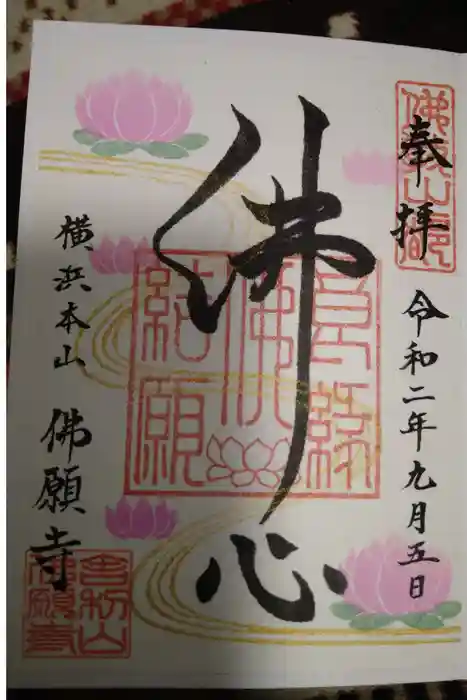 奉拝
令和二年九月五日
佛心
良縁
佛
結願
横浜本山
佛願寺
舎利山
佛願寺